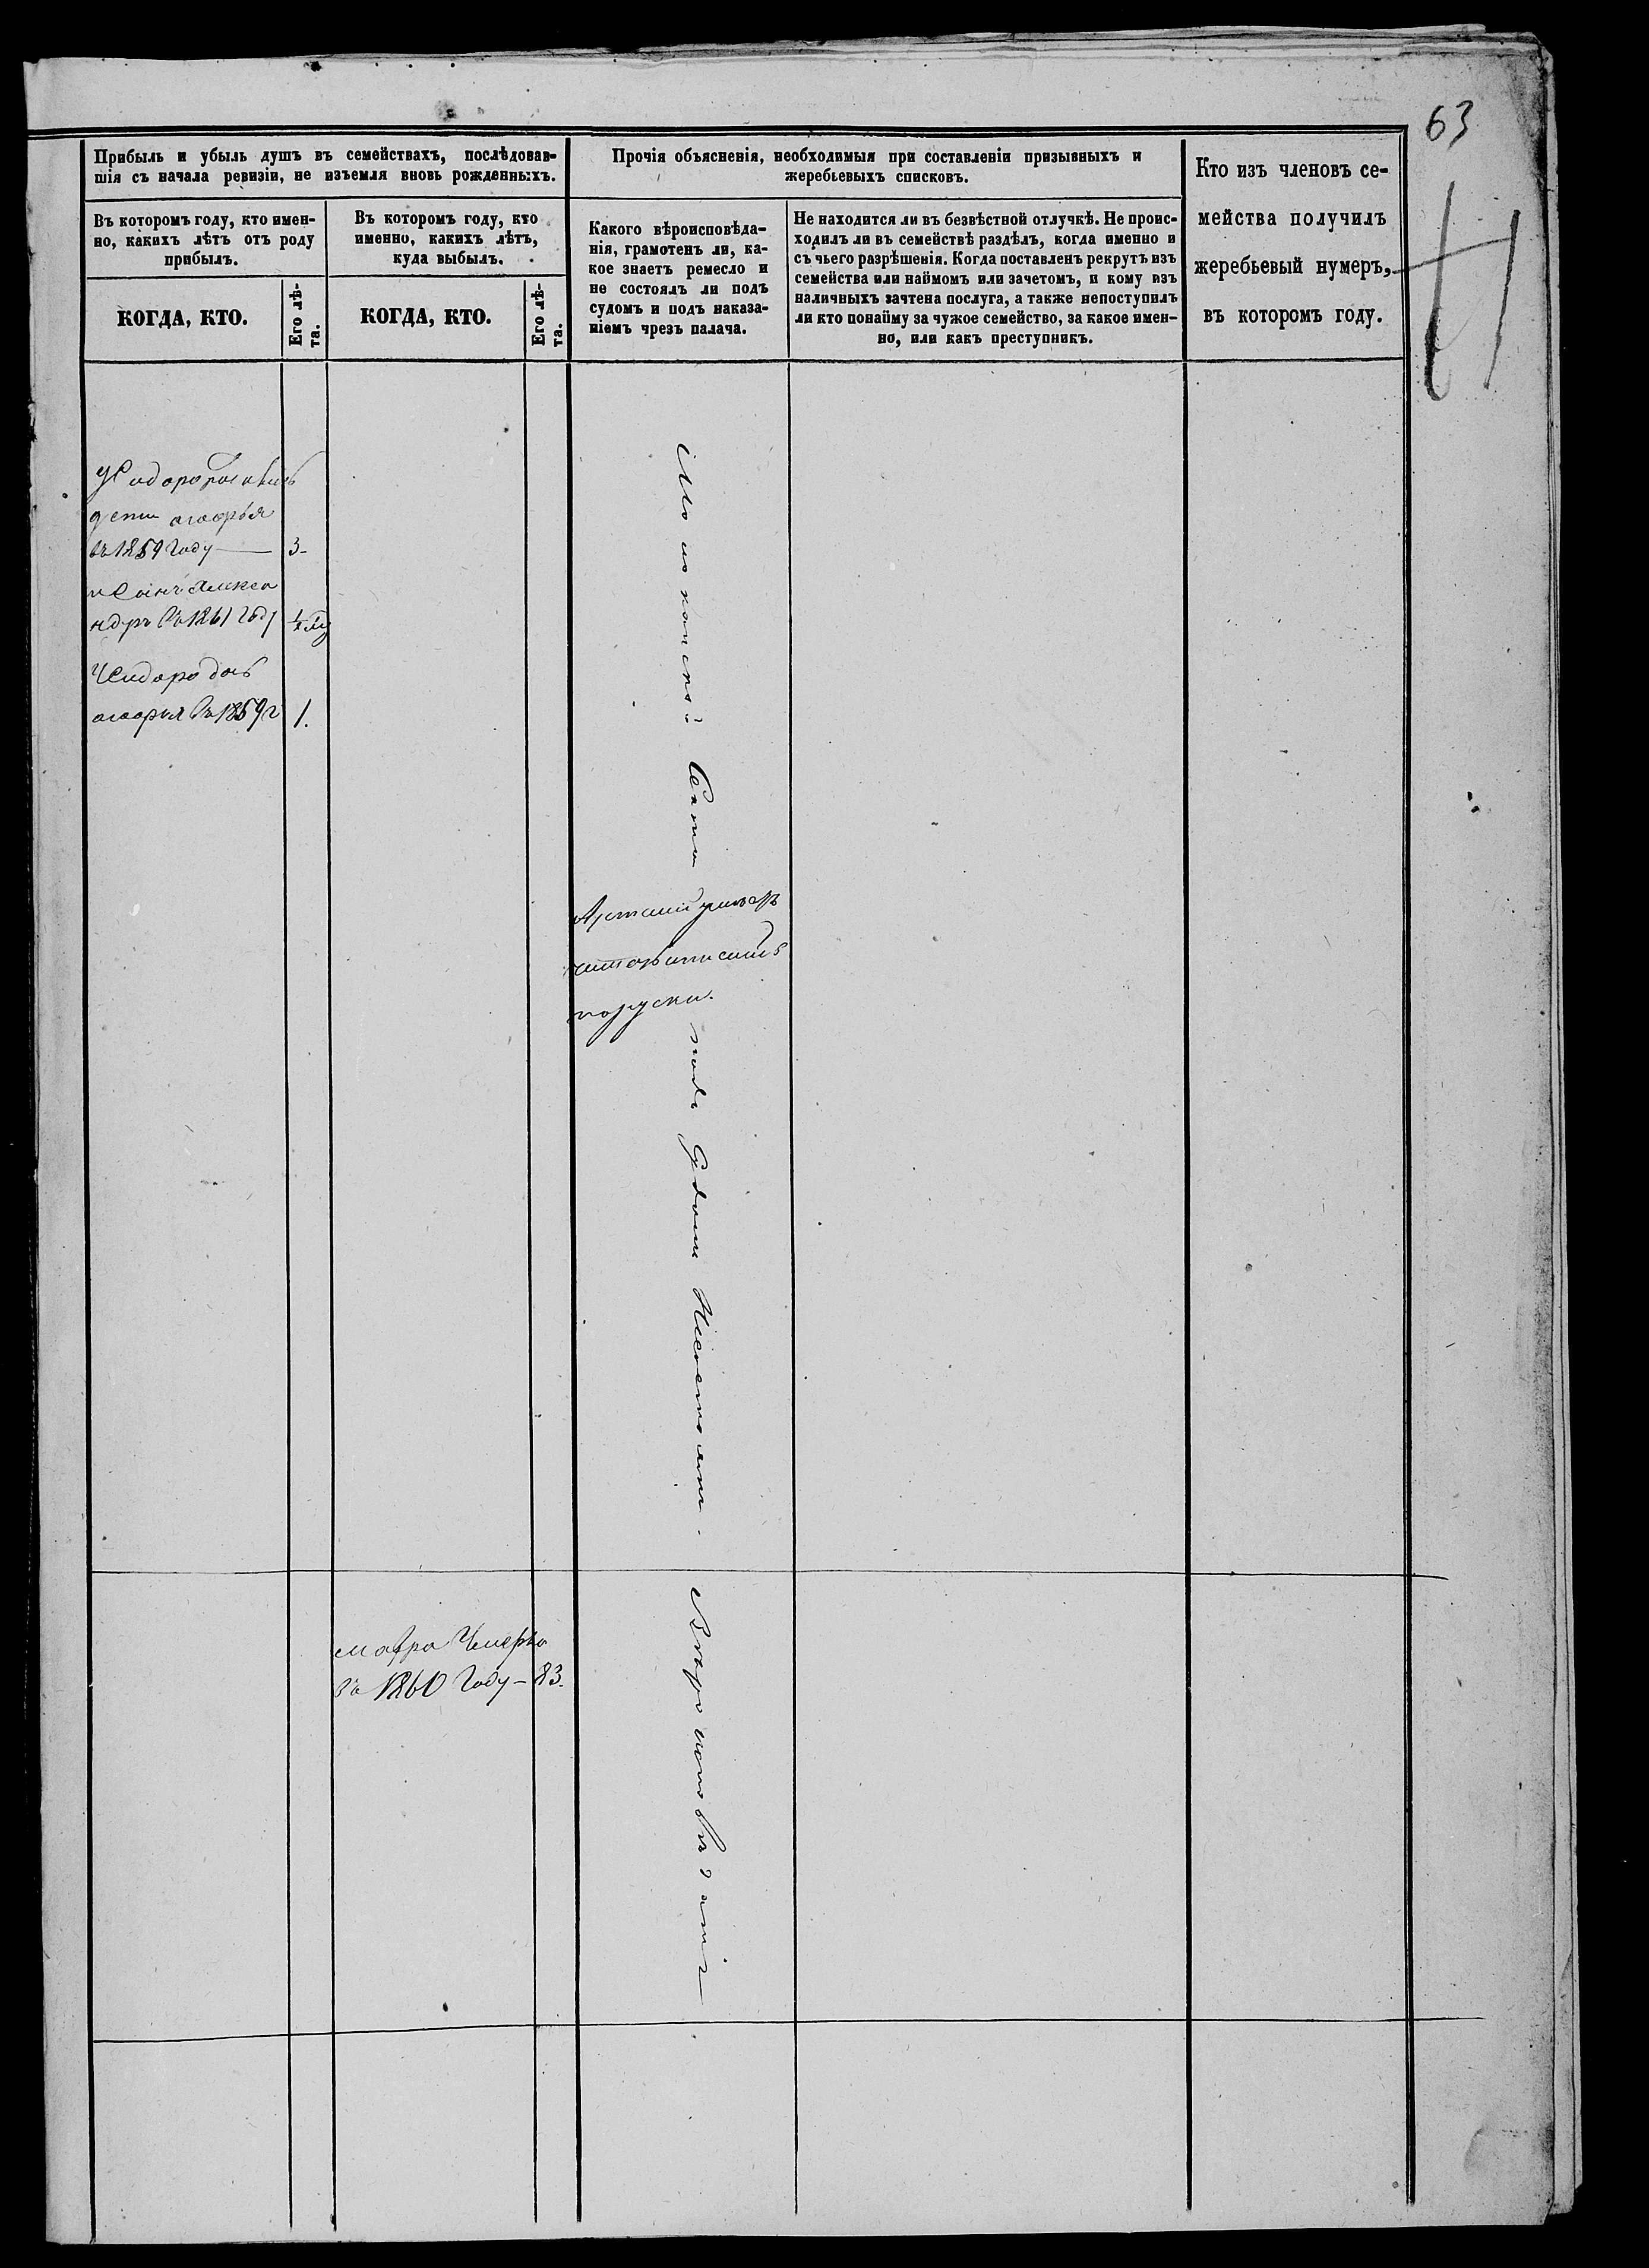 63
Прибыль и убыль душъ въ семействахъ, послѣдовав-
шія съ начала ревизіи, не изъемля вновь рожденныхъ.
Въ которомъ году, кто имен-
но, какихъ лѣтъ отъ роду
прибылъ.
КОГДА, КТО.
Его лѣ-
та.
Въ которомъ году, кто
именно, какихъ лѣтъ,
куда выбылъ.
КОГДА, КТО.
Его лѣ-
та.
Прочія объясненія, необходимыя при составленіи призывныхъ и
жеребьевыхъ списковъ.
Какого вѣроисповѣда-
нія, грамотенъ ли, ка-
кое знаетъ ремесло и
не состоялъ ли подъ
судомъ и подъ наказа-
ніемъ чрезъ палача.
Не находится ли въ безвѣстной отлучкѣ. Не проис-
ходилъ ли въ семействѣ раздѣлъ, когда именно и
съ чьего разрѣшенія. Когда поставленъ рекрутъ изъ
семейства или наймомъ или зачетомъ, и кому изъ
наличныхъ зачтена послуга, а также непоступилъ
ли кто понайму за чужое семейство, за какое имен-
но, или какъ преступникъ.
Кто изъ членовъ се-
мейства получилъ
жеребьевый нумеръ,
въ которомъ году.
дети
въ 1859 году — 3-
и Сынъ Алекса
ндръ Въ 1861 году 1/2
дочь
Въ 1859 г 1.
Молоканской Секты
по руски.
подъ Судомъ Несостоятъ.
мафра
въ 1860 году — 83.